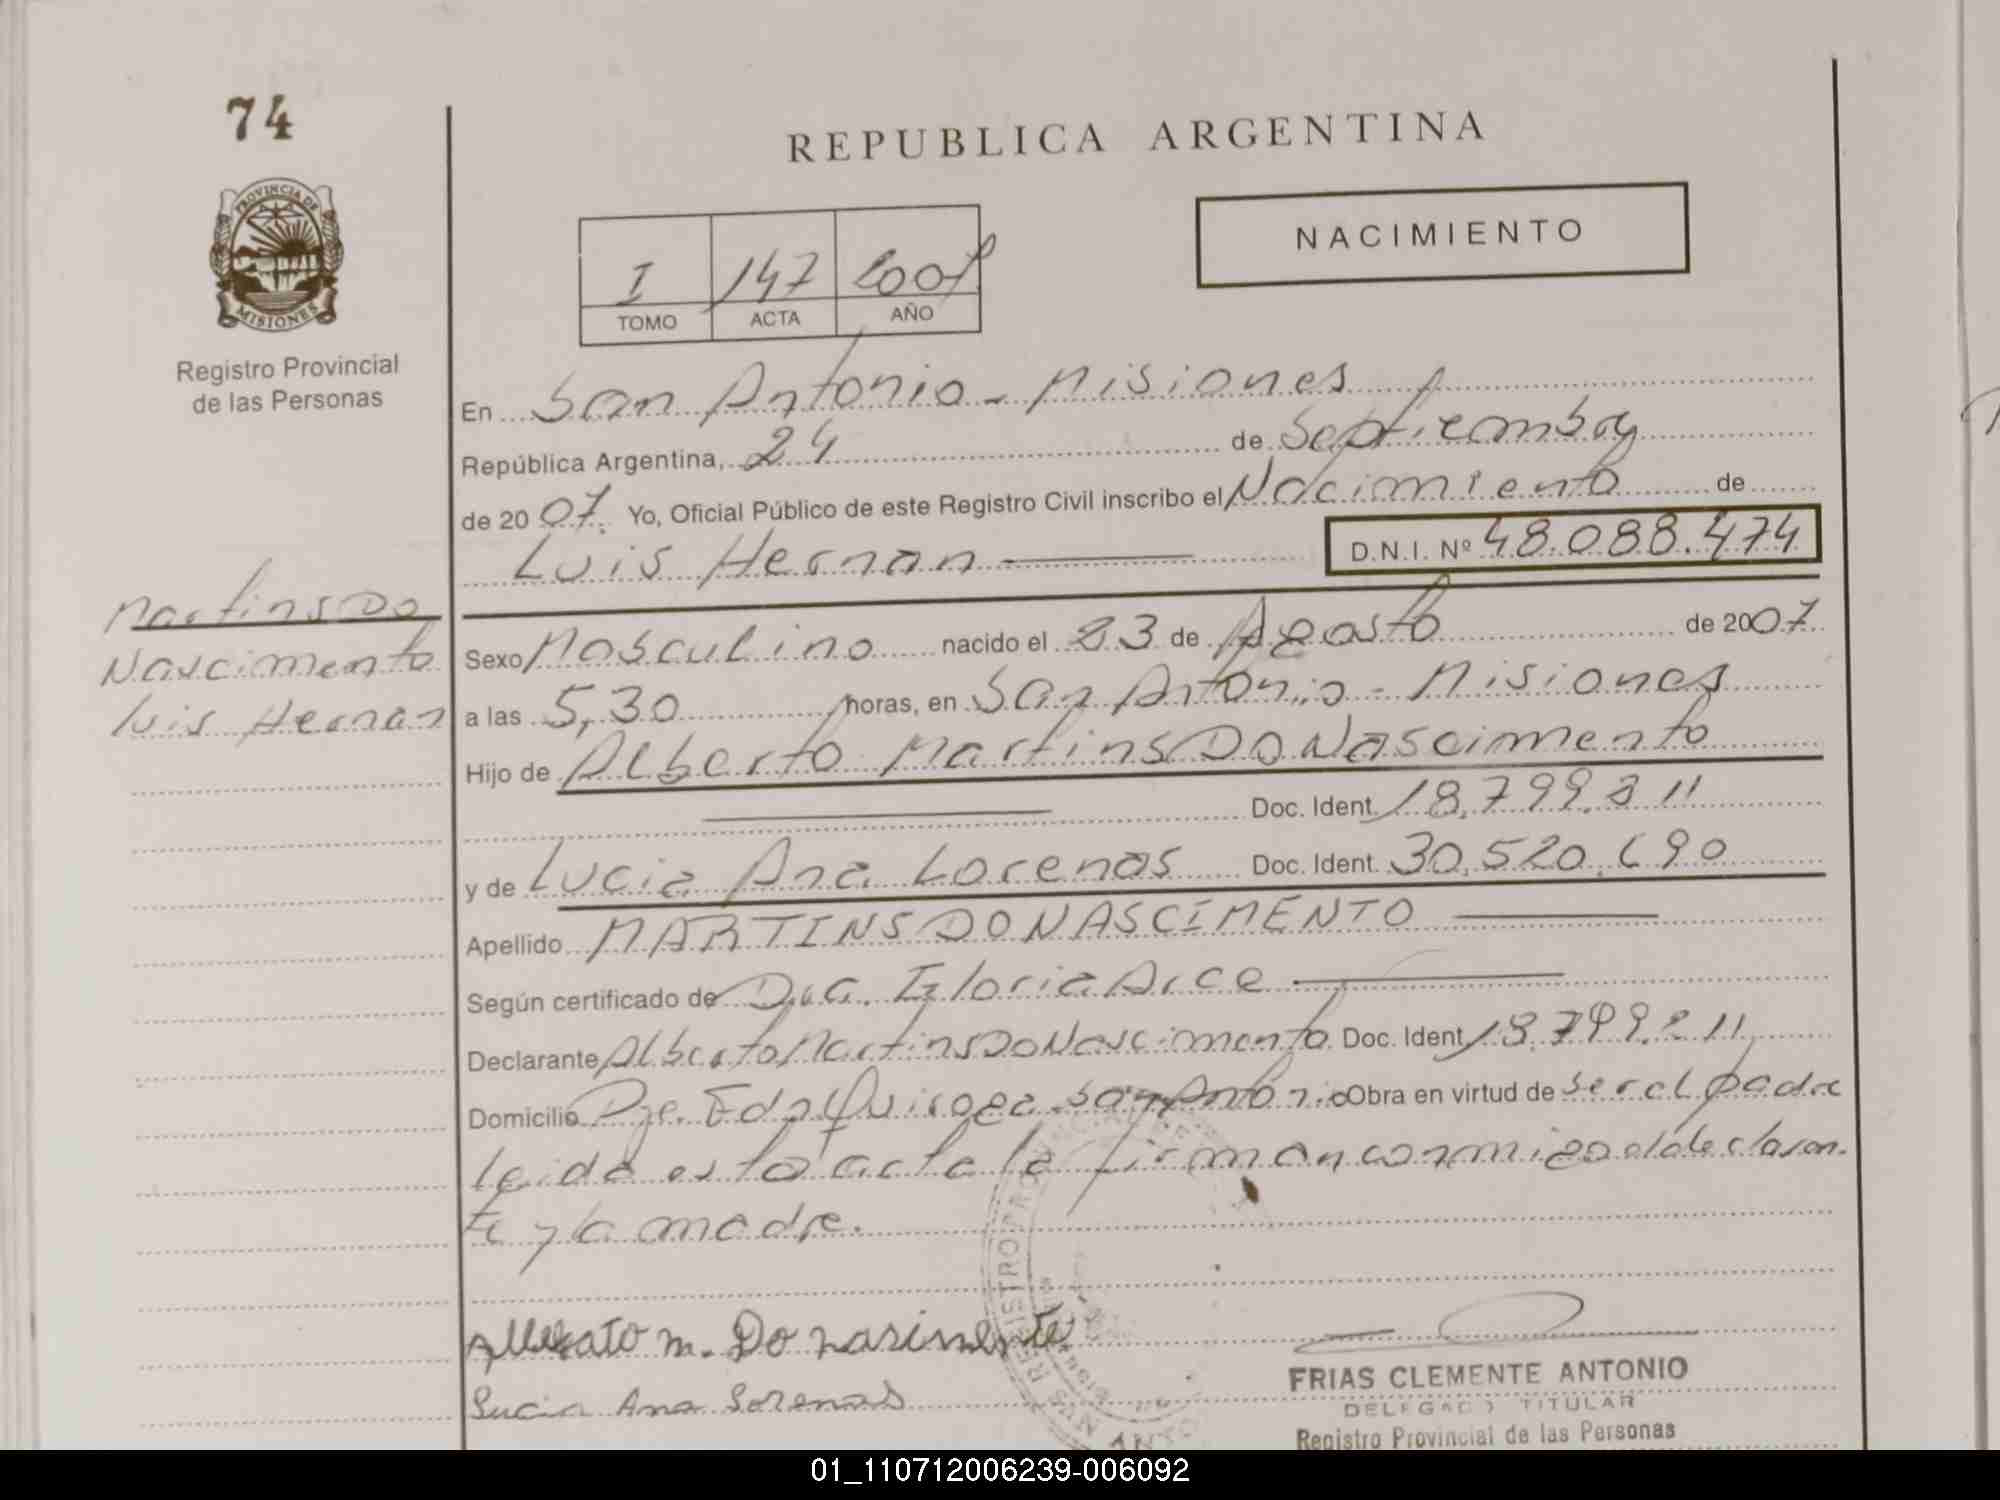 74
REPUBLICA ARGENTINA
PROVINCIA DE
MISIONES
Registro Provincial
de las Personas
I 147 2007
TOMO ACTA AÑO
NACIMIENTO
En San Antonio - Misiones
República Argentina, 24 de Septiembre
de 2007. Yo, Oficial Público de este Registro Civil inscribo el Nacimiento de
Luis Hernan D.N.I. Nº 48.088.474
Martins Do
Nascimento
Luis Hernan
Sexo Masculino nacido el 23 de Agosto de 2007
a las 5,30 horas, en San Antonio - Misiones
Hijo de Alberto Martins Do Nascimento
Doc. Ident. 18.799.211
y de Lucia Ana Lorenas Doc. Ident. 30.520.690
Apellido MARTINS DO NASCIMENTO
Según certificado de Dra. Gloria Arce
Declarante Alberto Martins Do Nascimento Doc. Ident. 18.799.211
Domicilio Pje. Quiroga San Antonio Obra en virtud de ser el padre
leida esta acta la firman conmigo el declaran-
te y la madre.
m. Do
Lucia Ana Lorenas
FRIAS CLEMENTE ANTONIO
DELEGADO TITULAR
Registro Provincial de las Personas
01_110712006239-006092